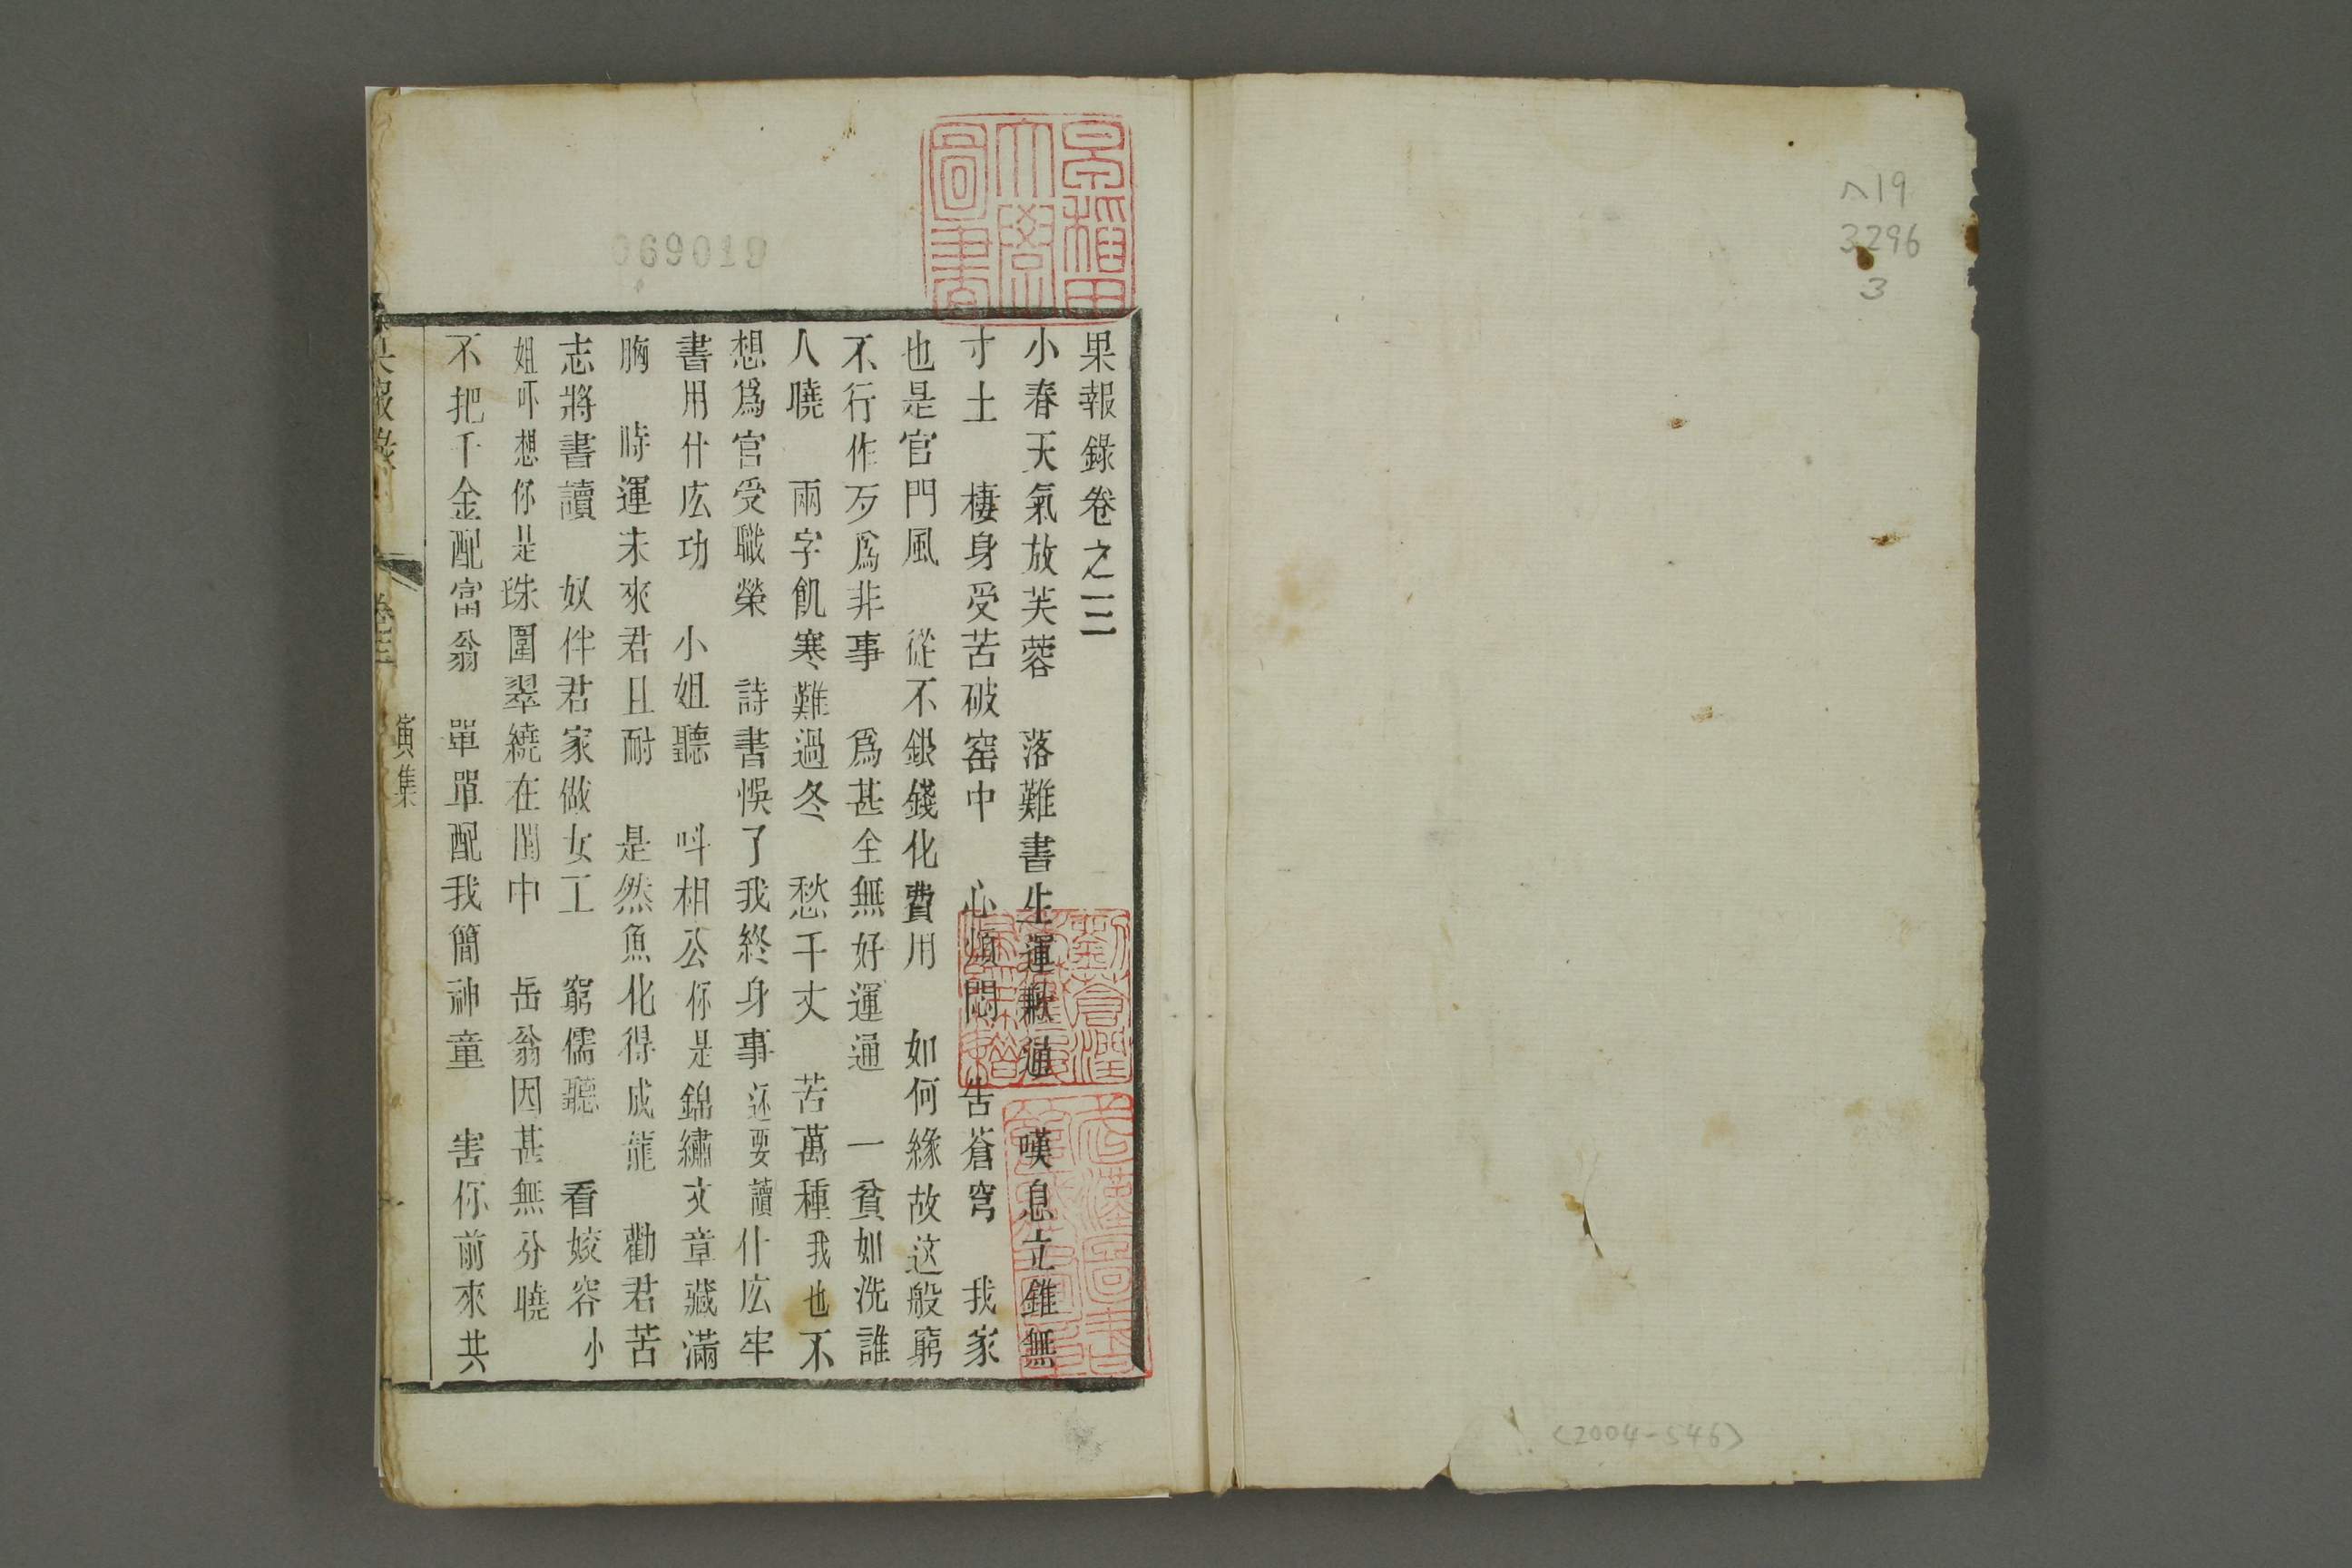 果報錄卷之三
小春天氣放芙蓉　落難書生運歉通　嘆息立錐無
寸土　棲身受苦破窑中　心煩悶　告蒼穹　我家
也是官門風　從不銀錢化費用　如何緣故这般窮
不行作歹爲非事　爲甚全無好運通　一貧如洗誰
人曉　兩字飢寒難過冬　愁千丈　苦萬種我也不
想爲官受職榮　詩書悞了我終身事还要讀什広牢
書用什広功　小姐聽　呌相公你是錦繡文章藏滿
胸　時運未來君且耐　是然魚化得成龍　勸君苦
志將書讀　奴伴君家做女工　窮儒聽　看姣容小
姐吓想你是珠圍翠繞在閨中　岳翁因甚無分曉
不把千金配富翁　單單配我簡神童　害你前來共
果報錄
卷三
演集
一
早稻田
大學
圖書
069019
へ19
3296
3
<2004-546>